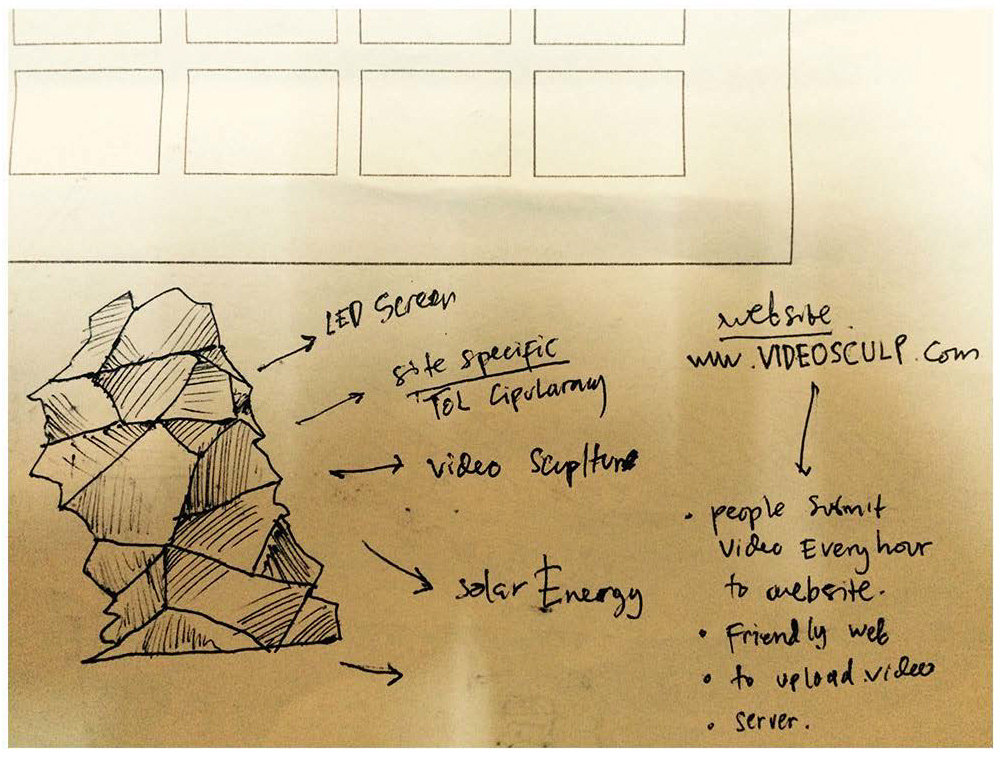 LED Screen
site specific
TOL Cipularang
video Sculpture
solar Energy
website
www.VIDEOSCULP.com
• people submit
video Every hour
to website.
• Friendly web
• to upload video
• server.